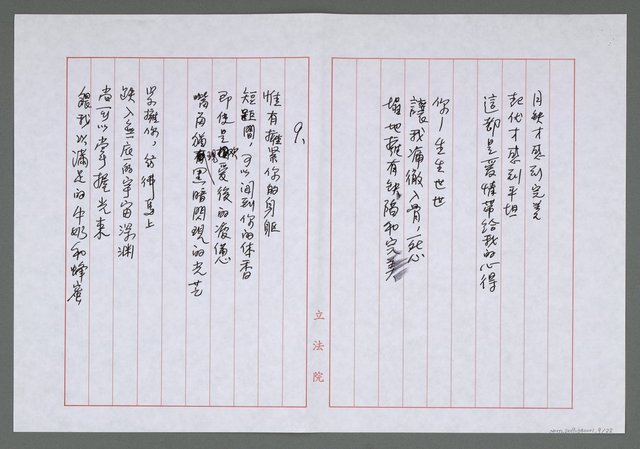 月缺才感到完美
起伏才感到平坦
這都是愛情帶給我的心得
你一生生世世
讓我痛徹入骨，死心
塌地擁有缺陷和完美
立法院
9.
惟有擁緊你的身軀
短距間，可以聞到你的体香
即使是愛後的疲憊
嘴角猶 黑暗閃現的光芒
緊擁你，彷彿馬上
跌入無底的宇宙深淵
尚可以掌握光束
餵我以滿足的牛奶和蜂蜜